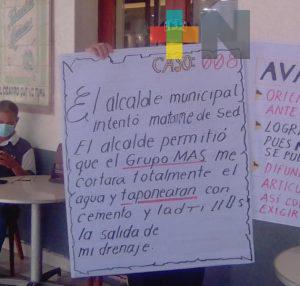 CASO: 008
El alcalde municipal
intentó matarme de sed
El alcalde permitió
que el Grupo MAS me
cortara totalmente el
agua y taponearan con
cemento y ladrillos
la salida de
mi drenaje.
AVI
ORIE
ANTE
LOGR
PUES
SE PU
DIFUN
ARTIC
ASÍ CO
EXIGIR